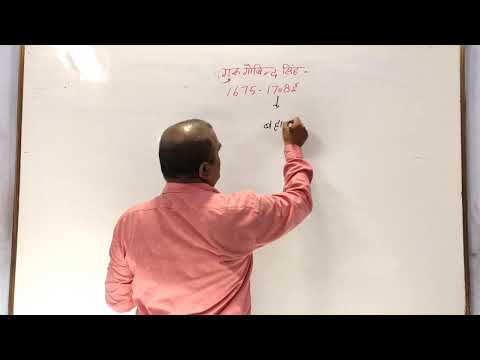 गुरु गोबिन्द सिंह -
1675 - 1708 ई
↓
बहा